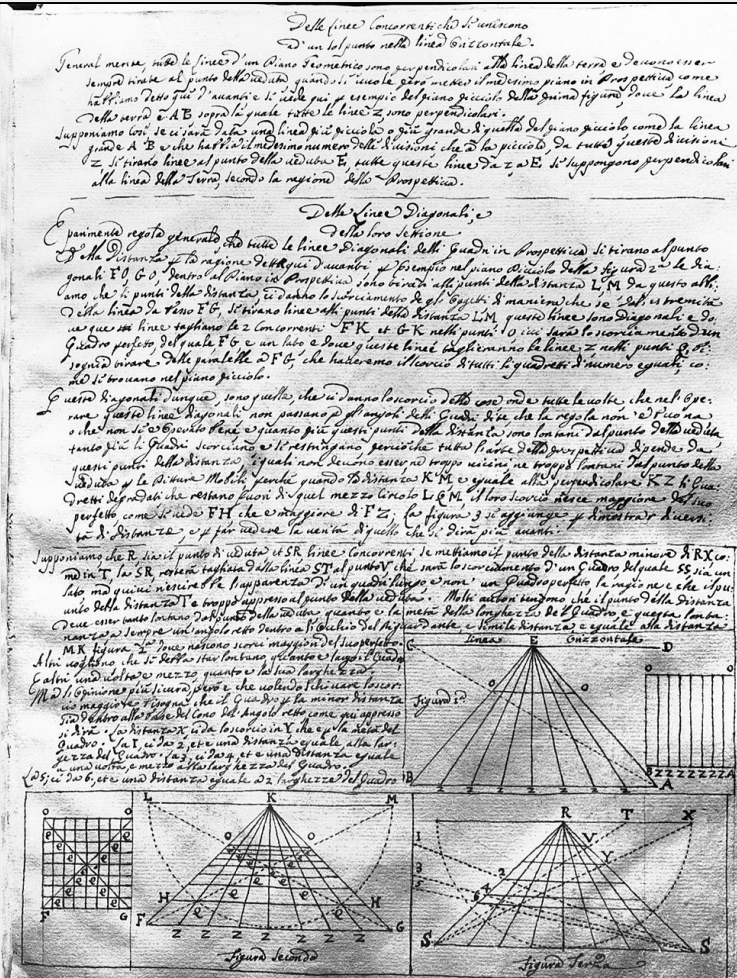 Delle Linee Concorrenti che si uniscono
D'un sol punto nella linea Orizontale.
General mente, tutte le linee d'un Piano Geometrico sono perpendicolari alla linea della terra e devono esser
sempre tirate al punto della veduta quando si vuole però metter il medesimo piano in Prospettiva come
habbiamo detto qui d'avanti e si vede qui per esempio del piano picciolo della prima figura, dove la linea
della terra è AB sopra la quale tutte le linee Z sono perpendicolari.
Supponiamo così se ci sarà data una linea più picciola o più grande di quella del piano picciolo come la linea
grande AB e che habbia il medesimo numero delle divisioni che à la picciola da tutte queste divisioni
Z si tirano linee al punto della veduta E, tutte queste linee da Z a E si suppongono perpendicolari
alla linea della Terra, secondo la ragione della Prospettiva.
Delle Linee Diagonali, e
della loro settione
E parimente regola generale, che tutte le linee Diagonali delli Quadri in Prospettiva si tirano al punto
della Distanza per la ragione detta qui d'avanti per esempio nel piano Picciolo della figura 2ª le dia:
gonali FO, GO, dentro al Piano in Prospettiva sono tirati alli punti della distanza LM da questo abbi:
amo che li punti della distanza, ci danno lo scorciamento de gli Ogetti di maniera che se dall'estremità
della linea da verso FG, si tirano linee alli punti della distanza LM queste linee sono diagonali e do:
ve queste linee tagliano le 2 concorrenti FK et GK nelli punti O ivi sarà lo scorciamento d'un
Quadro perfetto, del quale FG e un lato e dove queste linee taglieranno le linee Z nelli punti Q bi:
sognia tirare delle paralelle a FG, che haveremo il scorcio di tutti li quadretti di numero eguali co:
me si trovano nel piano picciolo.
Queste diagonali dunque, sono quelle, che ci danno lo scorcio delle cose onde tutte le volte che nell'Ope:
rare queste linee diagonali non passano per gl'angoli delli Quadri dite che la regola non è buona
o che non si è osservato bene e quanto più questi punti della distanza sono lontani dal punto della veduta
tanto più li Quadri scorciano e si restringano perciochè tutta l'arte della prospettiva dipende da
questi punti della distanza i quali non devono esser nè troppo vicini ne troppo lontani dal punto della
veduta per le Pitture Mobili perchè quando la distanza KM e eguale alla perpendicolare KZ li Qua:
dretti degradati che restano fuori di quel mezzo Circolo LGM il loro scorcio riesce maggiore del suo
perfetto come si vede FH che e maggiore di FZ; la figura 3 si aggiunge per dimostrar diversi:
tà di distanze, e per far vedere la verità di quello che si dirà più avanti.
Supponiamo che R, sia il punto di veduta et SR linee Concorrenti se mettiamo il punto della distanza minore di RX co:
me in T, la SR resterà tagliata dalla linea ST al punto V che sarà lo scorciamento d'un Quadro del quale SS sia un
lato ma quivi riescirebbe l'apparenza d'un quadrilungo e non un Quadro perfetto la ragione e che il pu:
unto della distanza T e troppo appresso al punto della veduta. Molti autori tengono che il punto della distanza
deve esser tanto lontano dal punto della veduta quanto e la metà della longhezza del Quadro e questa lonta:
nanza a sempre un angolo retto dentro a li Occhio del Riguardante, e simile distanza e eguale alla distanza
MK figura 2ª dove nascono scorci maggiori del suo perfetto.
Altri vogliono che si debba star lontano, quanto e largo il Quadro
E altri una volta e mezzo quanto e la sua larghezza
Ma l'Opinione più sicura, però e che volendo schivare lo scor:
cio maggiore bisogna che il Quadro per la minor distanza
sia dentro alla base del Cono del Angolo retto come qui appresso
si dirà. La distanza X ci da lo scorcio in Y che e per la metà del
Quadro. La 1, ci da 2, et e una distanza eguale alla lar:
ghezza del Quadro. La 3, ci da 4, et e una distanza eguale
a una volta, e mezzo alla larghezza del Quadro.
La 5; ci da 6, et e una distanza eguale a 2 larghezze del Quadro
Linea E Orizontale
C D
O O
Figura 1ª
B A
Z Z Z Z Z Z Z
O O
B Z Z Z Z Z Z A
O O
F G
L K M
O O
H H
F G
Z Z Z Z Z Z Z
Figura Seconda
R T X
V
Y
1
2
3
4
5
6
S S
Figura Terza